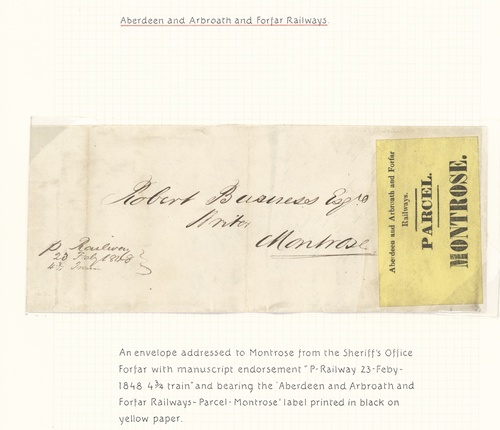 Aberdeen and Arbroath and Forfar Railways.
Robert Business Esqre
Writer
Montrose
p Railway
23 Feby 1848
4¾ train
Aberdeen and Arbroath and Forfar
Railways.
PARCEL.
MONTROSE.
An envelope addressed to Montrose from the Sheriff's Office
Forfar with manuscript endorsement "P-Railway 23-Feby-
1848 4¾ train" and bearing the 'Aberdeen and Arbroath and
Forfar Railways-Parcel-Montrose' label printed in black on
yellow paper.